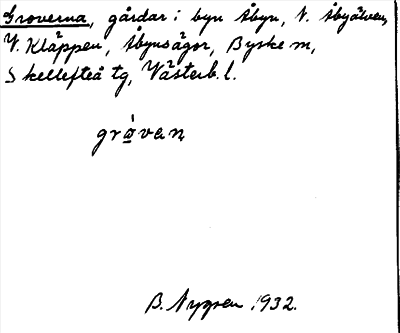 Groverna, gårdar i byn Åbyn, V. Åbyälven,
V. Kläppen, Åbynsägor, Byske sn,
Skellefteå tg, Västerb. l.
gråvan
B. Nygren 1932.